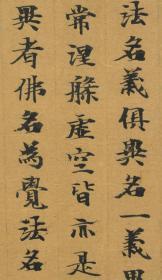 法名義俱異名一義異
常涅槃虛空皆亦是
異者佛名為覺法名